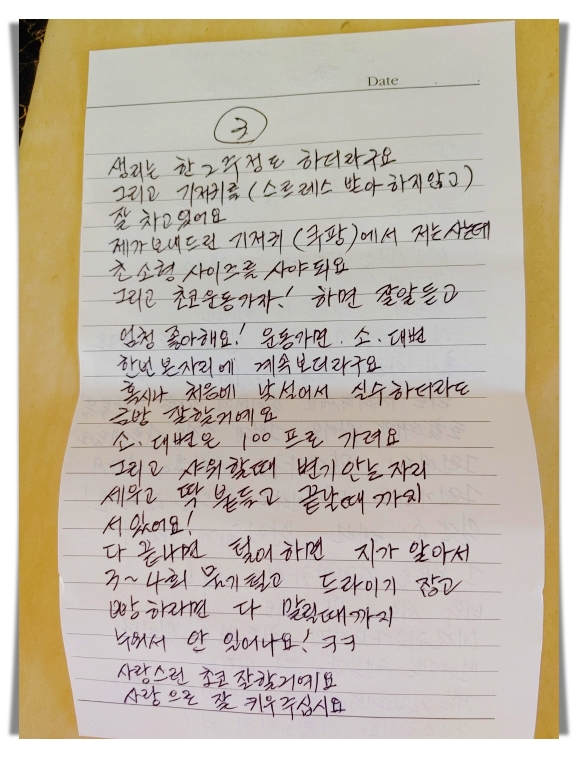 Date . .
3
생리는 한 2주정도 하더라구요
그리고 기저귀를 (스트레스 받아 하지않고)
잘 차고있어요
제가보내드린 기저귀 (쿠팡)에서 저는 사는데
초소형 사이즈를 사야되요
그리고 초코운동가자! 하면 잘알듣고
엄청 좋아해요! 운동가면. 소.대변
한번 본자리에 계속보더라구요
혹시나 처음에 낯설어서 실수하더라도
금방 잘할거예요
소.대변은 100프로 가려요
그리고 샤워할때 변기안는자리
세우고 딱 붙들고 끝날때까지
서있어요!
다 끝나면 털어하면 지가 알아서
3~4회 물기털고 드라이기 잡고
빵하라면 다 말릴때까지
누워서 안 일어나요! ㅋㅋ
사랑스런 초코 잘할거예요
사랑으로 잘 키우주십시요